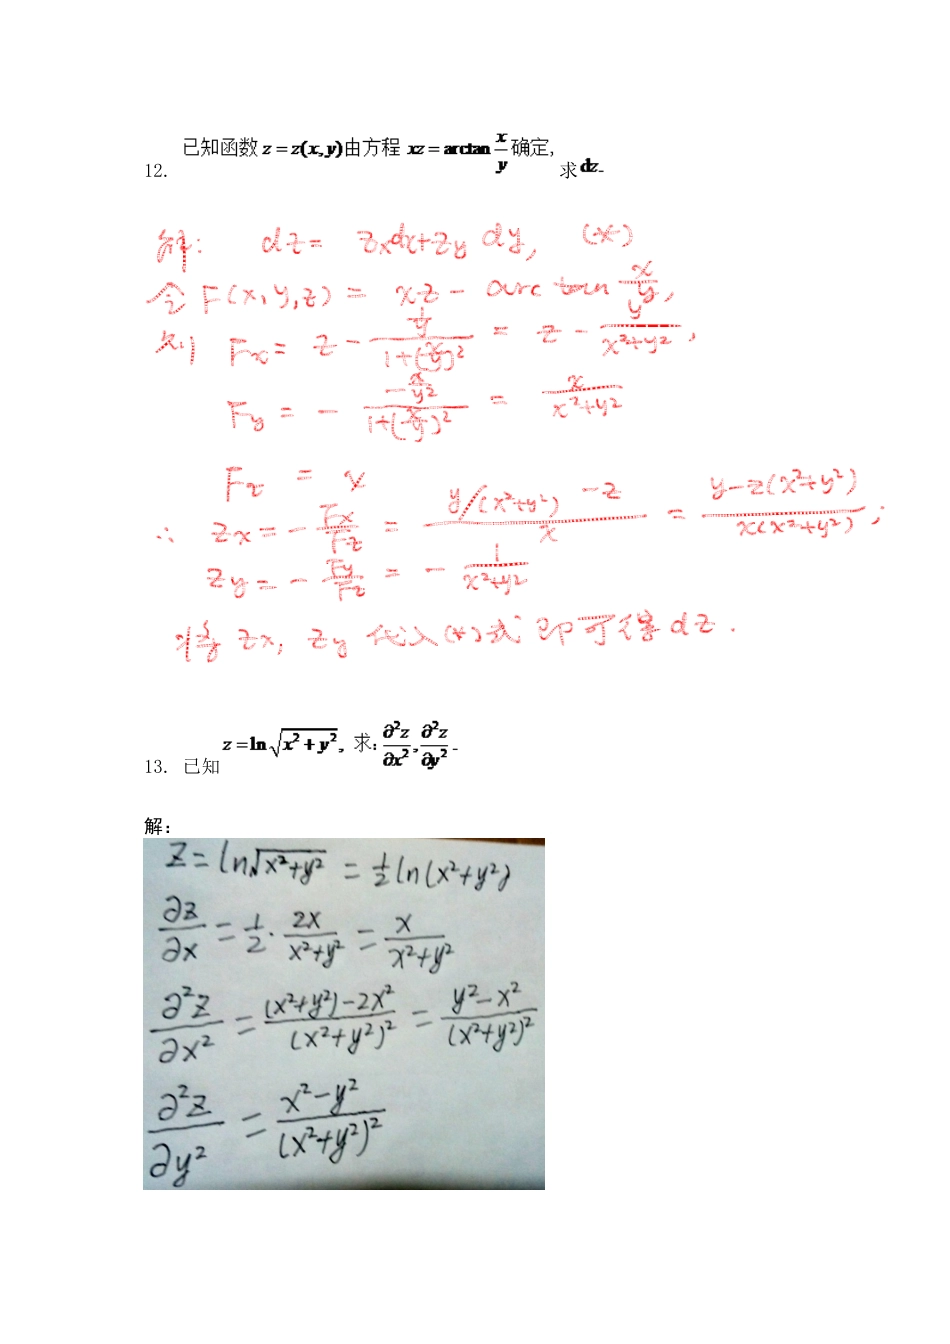 12. 已知函数 z = z(x, y) 由方程 xz = arctan x/y 确定, 求 dz.
解: dz = z_x dx + z_y dy, (*)
令 F(x, y, z) = xz - arctan x/y,
则 F_x = z - (1/y)/(1+(x/y)²) = z - y/(x²+y²),
F_y = - (-x/y²)/(1+(x/y)²) = x/(x²+y²)
F_z = x
∴ z_x = - F_x/F_z = (y/(x²+y²) - z)/x = (y-z(x²+y²))/(x(x²+y²));
z_y = - F_y/F_z = - 1/(x²+y²)
将 z_x, z_y 代入(*)式即可得dz.
13. 已知 z = ln √(x² + y²), 求: ∂²z/∂x², ∂²z/∂y².
解:
z = ln√(x²+y²) = 1/2 ln(x²+y²)
∂z/∂x = 1/2 · 2x/(x²+y²) = x/(x²+y²)
∂²z/∂x² = ((x²+y²)-2x²)/(x²+y²)² = (y²-x²)/(x²+y²)²
∂²z/∂y² = (x²-y²)/(x²+y²)²